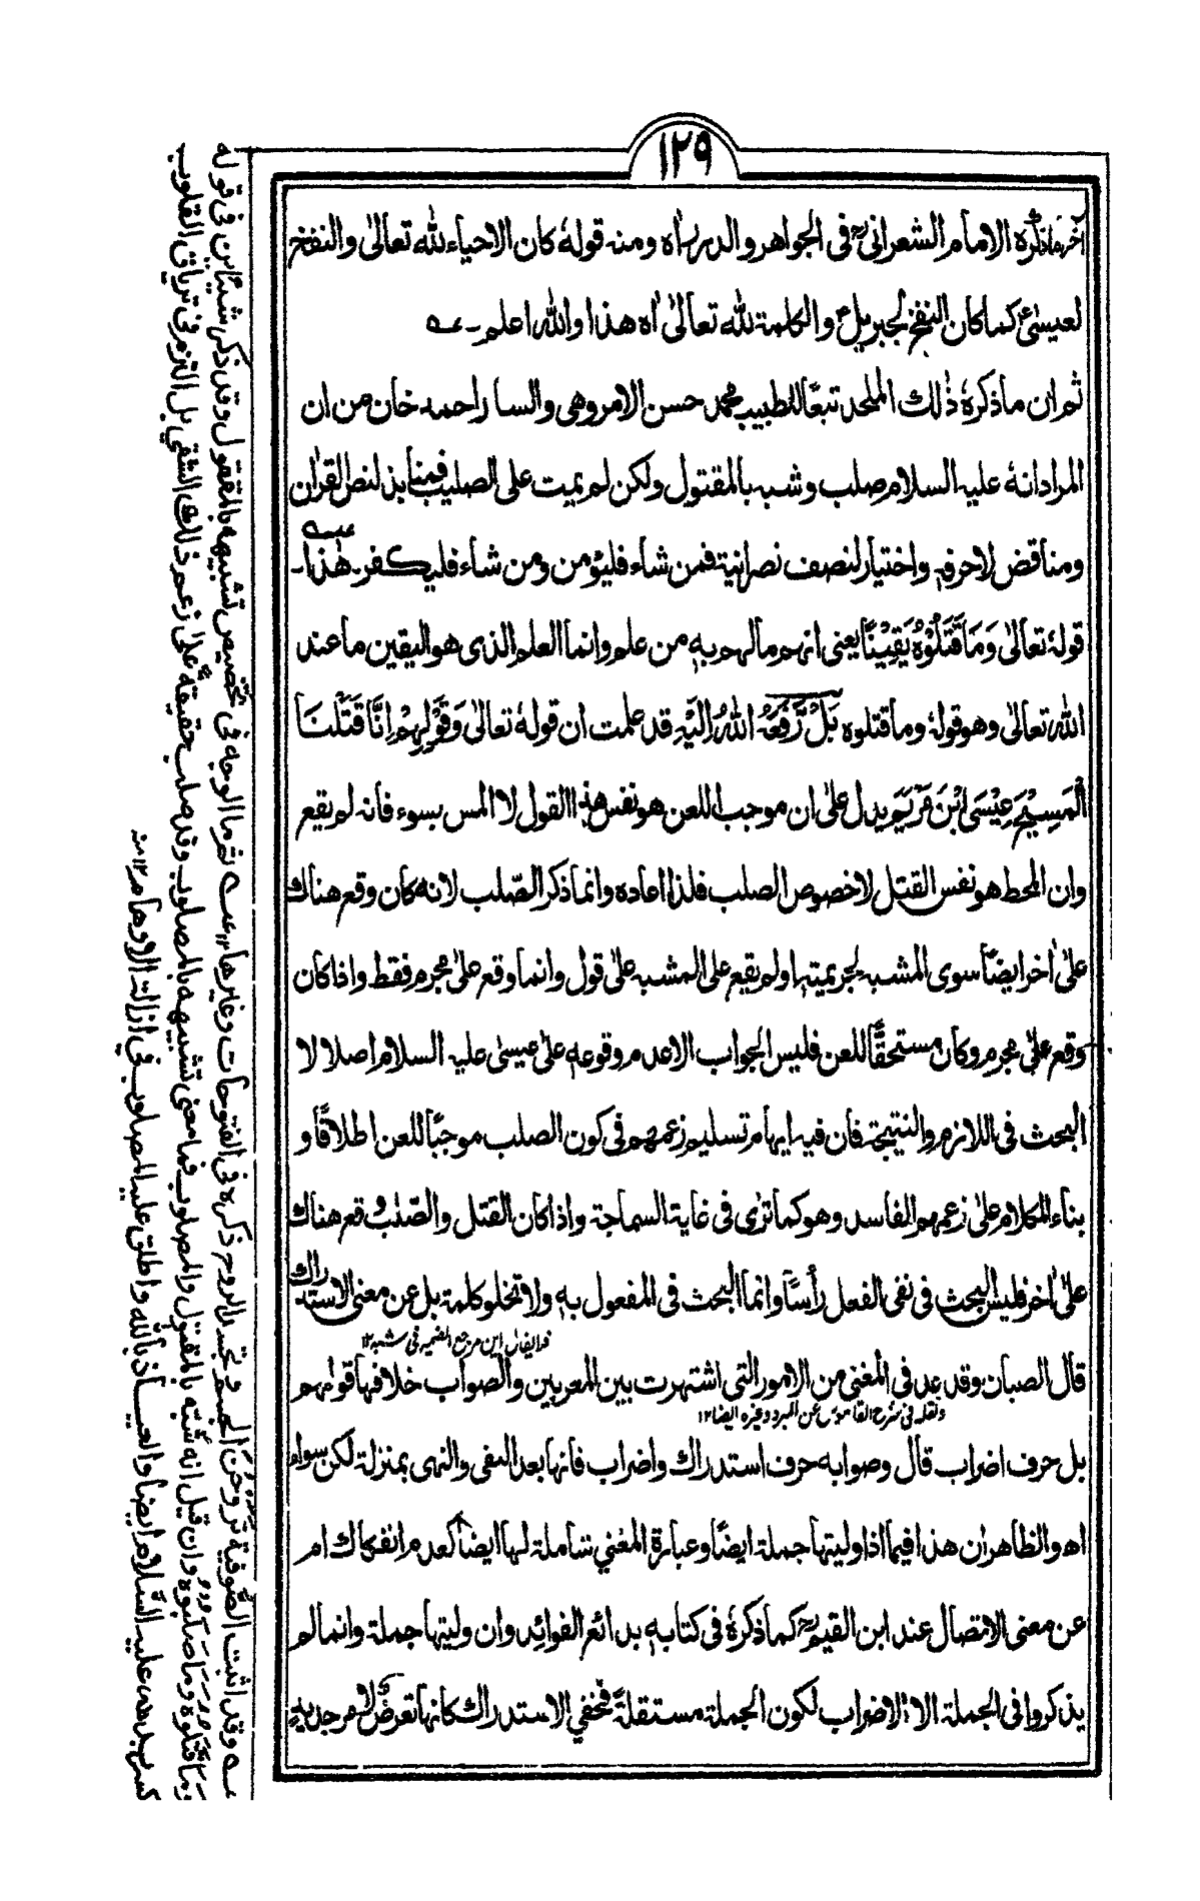 ١٢٩
آخر ماذكره الامام الشعرانيؒ فى الجواهر والدرر اه ومنه قولهٗ كان الاحياء لله تعالىٰ والنفخ
لعيسىٰؑ كما كان النفخ لجبريلؑ والكلمة لله تعالىٰ اه هذا والله اعلم ـ عه
ثم ان ماذكرهٗ ذٰلك الملحد تبعًا للطبيب محمد حسن الامروهى والسا راحمد خان من ان
المراد انهٗ عليه السلام صلب وشبه بالمقتول ولكن لم يمت على الصليب فمنابذ لنص القرآن
ومناقض لاحرفهٖ واختيار لنصف نصرانية فمن شاء فليؤمن ومن شاء فليكفر ـ هٰذا ـ
قولهٗ تعالىٰ وَمَا قَتَلُوْهُ يَقِيْنًا يعنى انهم مالهم بهٖ من علم وانما العلم الذى هو اليقين ما عند
الله تعالىٰ وهو قولهٗ وما قتلوه بَلْ رَّفَعَهُ اللهُ اِلَيْهِ قد علمت ان قولهٗ تعالىٰ وَقَوْلِهِمْ اِنَّا قَتَلْنَا
الْمَسِيْحَ عِيْسَى ابْنَ مَرْيَمَ يدل علىٰ ان موجب اللعن هو نفس هذا القول لا المس بسوء فانه لم يقع
وان المحط هو نفس القتل لا خصوص الصلب فلذا اعاده وانما ذكر الصّلب لانه كان وقع هناك
علىٰ اٰخر ايضًا سوى المشبه لجريمتها ولم يقع على المشبه علىٰ قول وانما وقع علىٰ مجرم فقط واذا كان
وقع علىٰ مجرم وكان مستحقًّا للعن فليس الجواب الا عدم وقوعهٖ علىٰ عيسىٰ عليه السلام اصلا لا
البحث فى اللازم والنتيجة فان فيه ايهام تسليم زعمهم فى كون الصلب موجبًا للعن اطلاقًا و
بناء الكلام علىٰ زعمهم الفاسد وهو كما ترٰى فى غاية السماجة واذا كان القتل والصّلب وقع هناك
علىٰ اٰخر فليس البحث فى نفى الفعل رأسًا وانما البحث فى المفعول بهٖ ولا تخلو كلمة بل عن معنى الاستدراك
قال الصبان وقد عد فى المغنى من الامور التى اشتهرت بين المعربين والصواب خلافها قولهم
ونقله فى شرح القاموس عن المبرد وغيره ايضا ١٢
بل حرف اضراب قال وصوابه حرف استدراك واضراب فانها بعد النفى والنهى بمنزلة لكن سواء
اه والظاهر ان هذا فيما اذا وليتها جملة ايضًا وعبارة المغني شاملة لها ايضًا كعدم انفكاك ام
عن معنى الاتصال عند ابن القيمؒ كما ذكرهٗ فى كتابهٖ بدائع الفوائد وان وليتها جملة وانما لم
يذكروا فى الجملة الا الاضراب لكون الجملة مستقلةً فخفي الاستدراك كانها تعرض لامر جديد
عه وقد اثبت الصُّوفية تروحن الجسم وتجسد الروح ذكره فى الفتوحات وغيرها ١٢ عه ثم ما الوجه فى تخصيص تشبيهه بالمقتول وقد ذكر شيئين فى قوله
وَمَا قَتَلُوْهُ وَمَا صَلَبُوْهُ وان قيل انه شبّه بالمقتول والمصلوب فما معنى تشبيهه بالمصلوب وقد صلب حقيقةً علىٰ زعم ذلك الشقي بل التزم فى ترياق القلوب
كسر يديه عليه السلام ايضا والعياذ بالله واطلق عليه المصلوب في ازالة الاوهام ١٢ منه